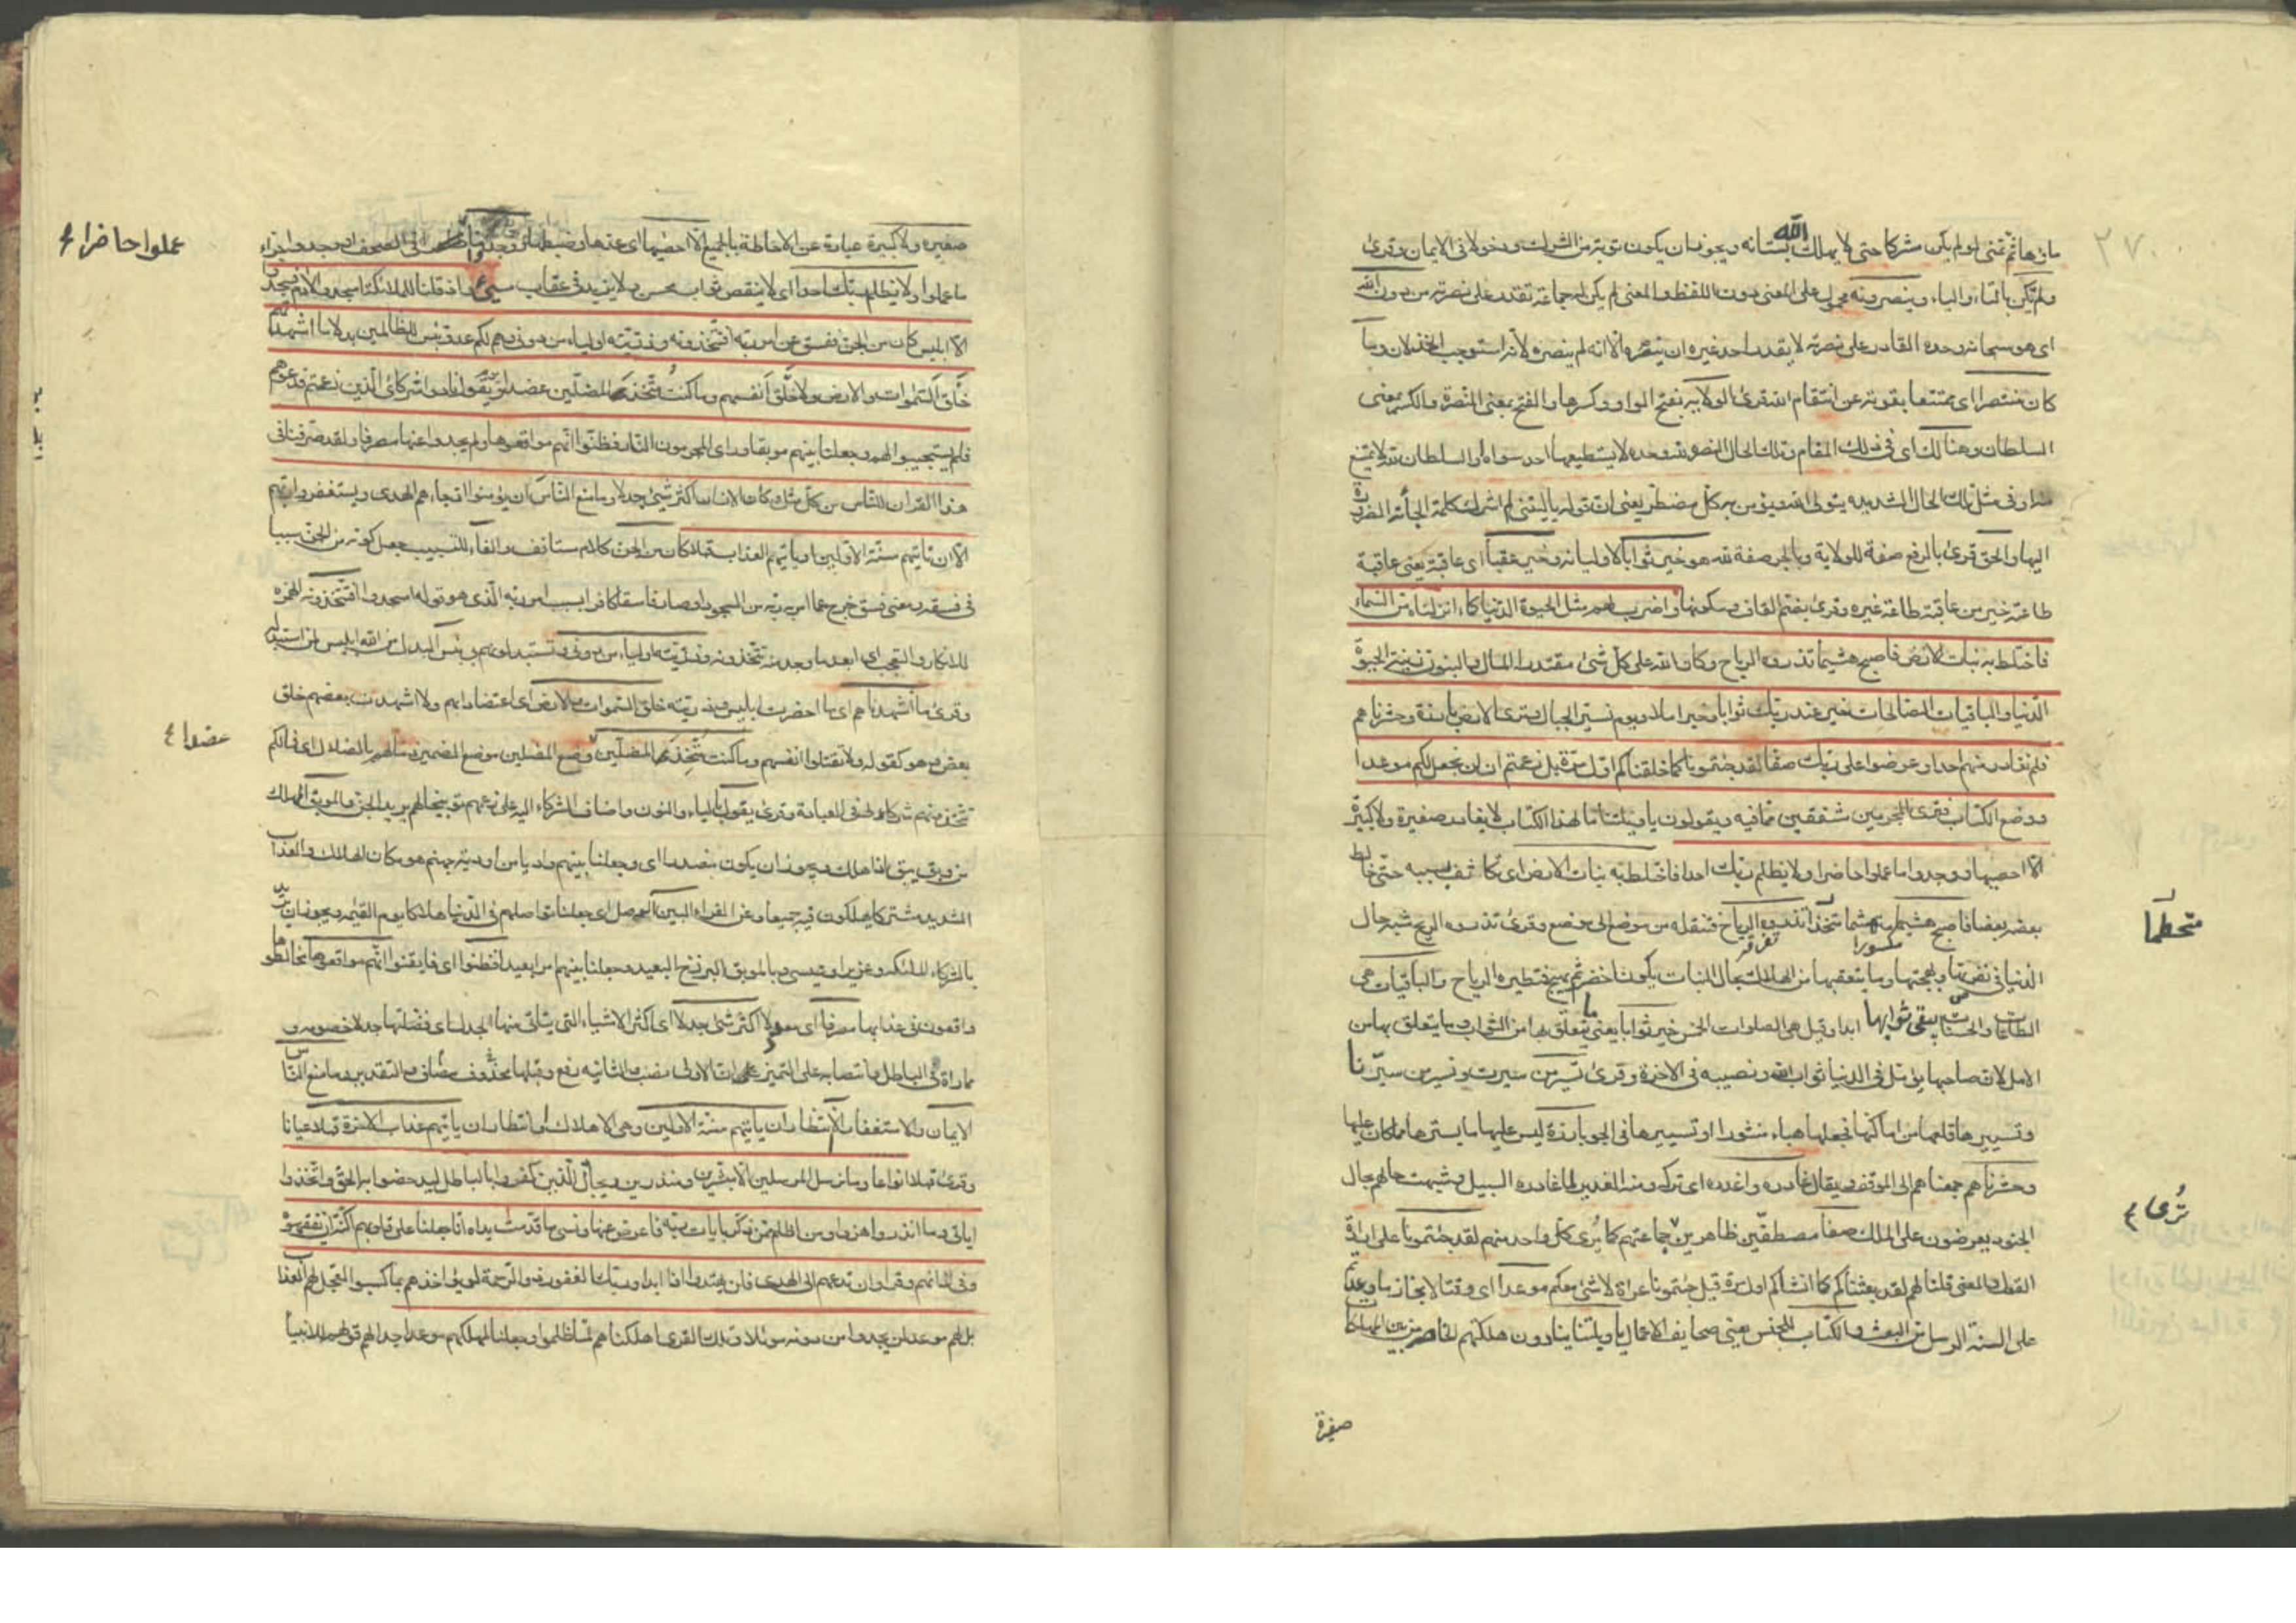 ٢٧٠
ما زها ثم تمنى لو لم يكن مشركا حتى لا يهلك الله بستانه ويجوز ان يكون توبة من الشرك ودخولا فى الايمان وقرئ
ولم يكن بالتاء والياء وينصرونه محمول على المعنى دون اللفظ والمعنى لم يكن له جماعة تقدر على نصرته من دون الله
اى هو سبحانه وحده القادر على نصرته لا يقدر احد غيره ان ينصره الا انه لم ينصره لانه استوجب الخذلان وما
كان منتصرا اى ممتنعا بقوته عن انتقام الله قرئ الولاية بفتح الواو وكسرها والفتح بمعنى النصرة والكسر بمعنى
السلطان وهنالك اى فى ذلك المقام وتلك الحال النصرة لله وحده لا يستطيعها احد سواه او السلطان لله لا يمتنع
منه او فى مثل تلك الحال الشديدة يتولى الله ويؤمن به كل مضطر يعنى ان قوله يا ليتنى لم اشرك كلمة الجأته الضرورة
اليها والحق قرئ بالرفع صفة للولاية وبالجر صفة لله هو خير ثوابا لاوليائه وخير عقبا اى عاقبة يعنى عاقبة
طاعته خير من عاقبة طاعة غيره وقرئ بضم القاف وسكونها واضرب لهم مثل الحيوة الدنيا كماء انزلناه من السماء
فاختلط به نبات الارض فاصبح هشيما تذروه الرياح وكان الله على كل شئ مقتدرا المال والبنون زينة الحيوة
الدنيا والباقيات الصالحات خير عند ربك ثوابا وخير املا ويوم نسير الجبال وترى الارض بارزة وحشرناهم
فلم نغادر منهم احدا وعرضوا على ربك صفا لقد جئتمونا كما خلقناكم اول مرة بل زعمتم ان لن نجعل لكم موعدا
ووضع الكتاب فترى المجرمين مشفقين مما فيه ويقولون يا ويلتنا ما لهذا الكتاب لا يغادر صغيرة ولا كبيرة
الا احصيها ووجدوا ما عملوا حاضرا ولا يظلم ربك احدا فاختلط به نبات الارض اى تكاثف بسببه حتى خالط
بعضه بعضا فاصبح هشيما تذروه الرياح فتنقله من موضع الى موضع وقرئ تذروه الريح شبه حال
متحطما
الدنيا فى نضرتها وبهجتها وما يتعقبها من الهلاك بحال النبات يكون اخضر ثم يهيج فتطيره الرياح والباقيات هى
الطاعات والحسنات يبقى ثوابها ابدا وقيل هى الصلوات الخمس خير ثوابا يعنى ما يتعلق بها من الثواب وما يتعلق بها من
الامل لان صاحبها يؤمل فى الدنيا ثواب الله ونصيبه فى الاخرة وقرئ تسير من سيرت ونسير من سيرنا
وتسييرها قلعها من اماكنها فجعلها هباء منثورا او تسييرها فى الجو بارزة ليس عليها ما يسترها مما كان عليها
وحشرناهم جمعناهم الى الموقف ويقال غادره واغدره اى تركه ومنه الغدير لما غادره السيل وشبهت حالهم بحال
الجنود يعرضون على الملك صفا مصطفين ظاهرين جماعتهم كما يرى كل واحد منهم لقد جئتمونا على ارادة
ترى
القول والمعنى قلنا لهم لقد بعثناكم كما انشأناكم اول مرة وقيل جئتمونا عراة لا شئ معكم موعدا اى وقتا لانجاز ما وعدتم
على السنة الرسل من البعث والكتاب للجنس يعنى صحايف الاعمال يا ويلتنا ينادون هلكتهم
صغيرة
صغيرة ولا كبيرة عبارة عن الاحاطة بالجميع الا احصيها اى عدها وضبطها ووجدوا فى الصحف او وجدوا جزاء
عملوا حاضرا
ما عملوا ولا يظلم ربك احدا اى لا ينقص ثواب محسن ولا يزيد فى عقاب مسئ واذ قلنا للملائكة اسجدوا لادم فسجدوا
الا ابليس كان من الجن ففسق عن امر ربه افتتخذونه وذريته اولياء من دونى وهم لكم عدو بئس للظالمين بدلا ما اشهدتهم
خلق السموات والارض ولا خلق انفسهم وما كنت متخذ المضلين عضدا ويوم يقول نادوا شركائى الذين زعمتم فدعوهم
فلم يستجيبوا لهم وجعلنا بينهم موبقا وراى المجرمون النار فظنوا انهم مواقعوها ولم يجدوا عنها مصرفا ولقد صرفنا فى
هذا القران للناس من كل مثل وكان الانسان اكثر شئ جدلا وما منع الناس ان يؤمنوا اذ جاءهم الهدى ويستغفروا ربهم
الا ان تاتيهم سنة الاولين او ياتيهم العذاب قبلا كان من الجن كلام مستانف والفاء للتسبيب جعل كونه من الجن سببا
فى فسقه ومعنى فسق خرج عما امر به ربه من السجود او صار فاسقا كافرا بسبب امر ربه الذى هو قوله اسجدوا افتتخذونه الهمزة
للانكار والتعجب اى ابعد ما وجد منه تتخذونه وذريته اولياء من دونى وتستبدلونهم بى بئس البدل من الله ابليس لمن استبدله
وقرئ ما اشهدناهم اى ما احضرت ابليس وذريته خلق السموات والارض اى اعتضادا بهم ولا اشهدت بعضهم خلق
بعض وهو كقوله ولا تقتلوا انفسكم وما كنت متخذ المضلين وضع المضلين موضع المضمر ذما لهم بالضلال اى فما لكم
عضدا
تتخذونهم شركاء لى فى العبادة وقرئ يقول بالياء والنون واضاف الشركاء اليه على زعمهم توبيخا لهم يريد الجن والموبق المهلك
من وبق يبق اذا هلك ويجوز ان يكون مصدرا اى وجعلنا بينهم واديا من اودية جهنم هو مكان الهلاك والعذاب
الشديد مشتركا يهلكون فيه جميعا وعن الفراء البين الوصل اى جعلنا تواصلهم فى الدنيا هلاكا يوم القيمة ويجوز ان يريد
بالشركاء الملائكة وعزيرا وعيسى وبالموبق البرزخ البعيد وجعلنا بينهم امدا بعيدا فظنوا اى فايقنوا انهم مواقعوها مخالطوها
واقعون فى عذابها مصرفا اى معدلا اكثر شئ جدلا اى اكثر الاشياء التى يتاتى منها الجدل اى فصلتها جدلا خصومة و
مماراة فى الباطل وانتصابه على التمييز ان الاولى نصب والثانيه رفع وقبلها محذوف مضاف والتقدير وما منع الناس
الايمان والاستغفار الا انتظار ان ياتيهم سنة الاولين وهى الاهلاك او انتظار ان ياتيهم عذاب الاخرة قبلا عيانا
وقرئ قبلا انواعا وما نرسل المرسلين الا مبشرين ومنذرين ويجادل الذين كفروا بالباطل ليدحضوا به الحق واتخذوا
اياتى وما انذروا هزوا ومن اظلم ممن ذكر بايات ربه فاعرض عنها ونسى ما قدمت يداه انا جعلنا على قلوبهم اكنة ان يفقهوه
وفى اذانهم وقرا وان تدعهم الى الهدى فلن يهتدوا اذا ابدا وربك الغفور ذو الرحمة لو يؤاخذهم بما كسبوا لعجل لهم العذاب
بل لهم موعد لن يجدوا من دونه موئلا وتلك القرى اهلكناهم لما ظلموا وجعلنا لمهلكهم موعدا جدالهم قولهم للانبيا